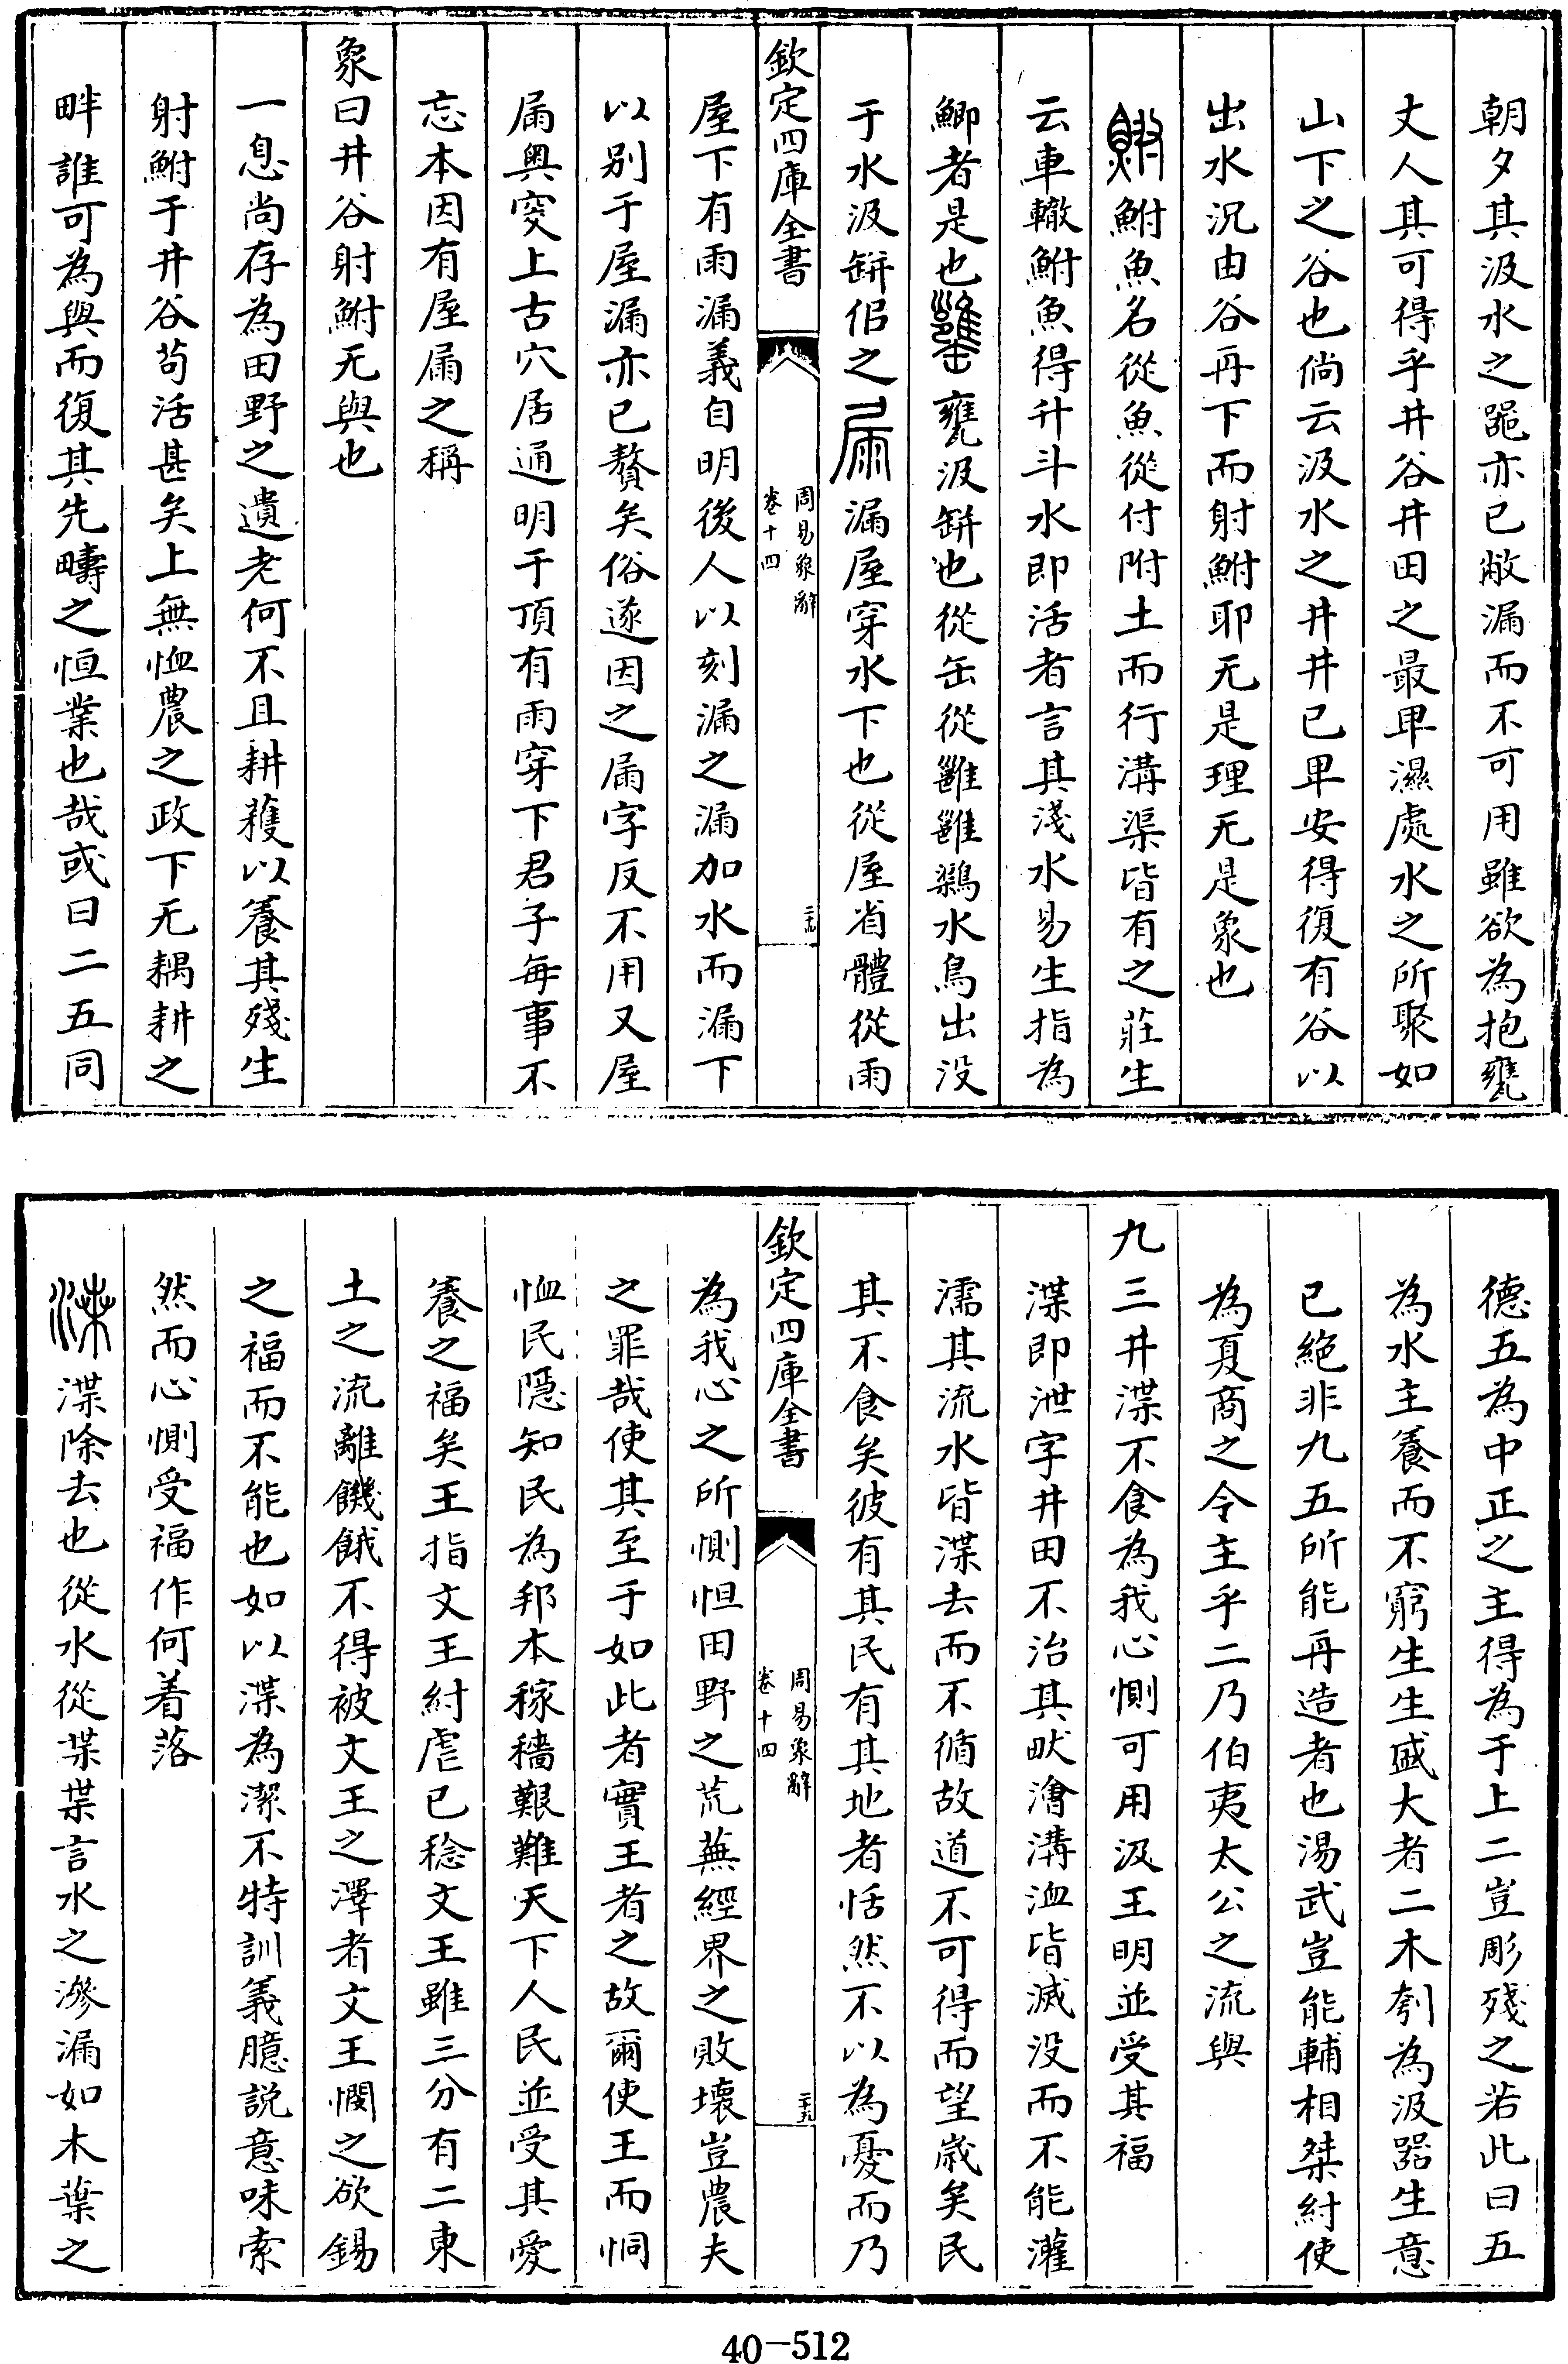 朝夕其汲水之噐亦已敝漏而不可用雖欲為抱甕
丈人其可得乎井谷井田之最卑濕處水之所聚如
山下之谷也倘云汲水之井井已卑安得復有谷以
出水況由谷再下而射鮒耶无是理无是象也
鮒鮒魚名從魚從付附土而行溝渠皆有之莊生
云車轍鮒魚得升斗水即活者言其淺水易生指為
鯽者是也甕汲缾也從缶從雝雝鸂水鳥出没
于水汲缾佀之屚漏屋穿水下也從屋省體從雨
欽定四庫全書
周易象辭
卷十四
屋下有雨漏義自明後人以刻漏之漏加水而漏下
以别于屋漏亦已贅矣俗遂因之屚字反不用又屋
屚與穾上古穴居通明于頂有雨穿下君子每事不
忘本因有屋屚之稱
象曰井谷射鮒无與也
一息尚存為田野之遺老何不且耕穫以養其殘生
射鮒于井谷苟活甚矣上無恤農之政下无耦耕之
畔誰可為與而復其先疇之恒業也哉或曰二五同
德五為中正之主得為于上二豈彫殘之若此曰五
為水主養而不窮生生盛大者二木刳為汲器生意
已絕非九五所能再造者也湯武豈能輔相桀紂使
為夏商之令主乎二乃伯夷太公之流與
九三井渫不食為我心惻可用汲王明並受其福
渫即泄字井田不治其畎澮溝洫皆滅没而不能灌
濡其流水皆渫去而不循故道不可得而望歲矣民
其不食矣彼有其民有其地者恬然不以為憂而乃
欽定四庫全書
周易象辭
卷十四
為我心之所惻怛田野之荒蕪經界之敗壞豈農夫
之罪哉使其至于如此者實王者之故爾使王而恫
恤民隱知民為邦本稼穡艱難天下人民並受其愛
養之福矣王指文王紂虐已稔文王雖三分有二東
土之流離饑餓不得被文王之澤者文王憫之欲錫
之福而不能也如以渫為潔不特訓義臆説意味索
然而心惻受福作何着落
渫渫除去也從水從枼枼言水之滲漏如木葉之
40-512